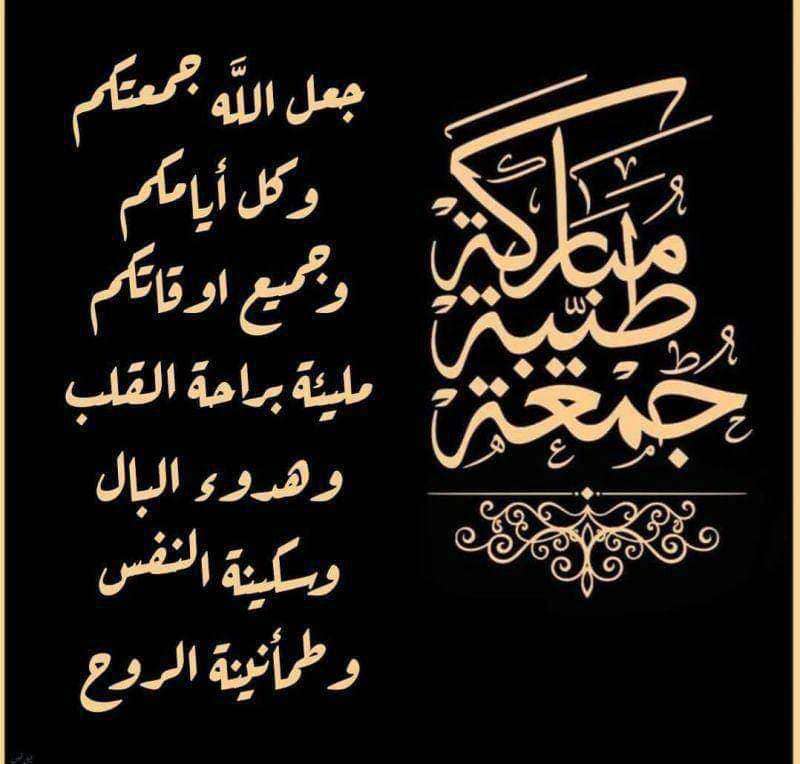 جمعة
طيبة
مباركة
جعل اللَّه جمعتكم
وكل أيامكم
وجميع اوقاتكم
مليئة براحة القلب
وهدوء البال
وسكينة النفس
وطمأنينة الروح